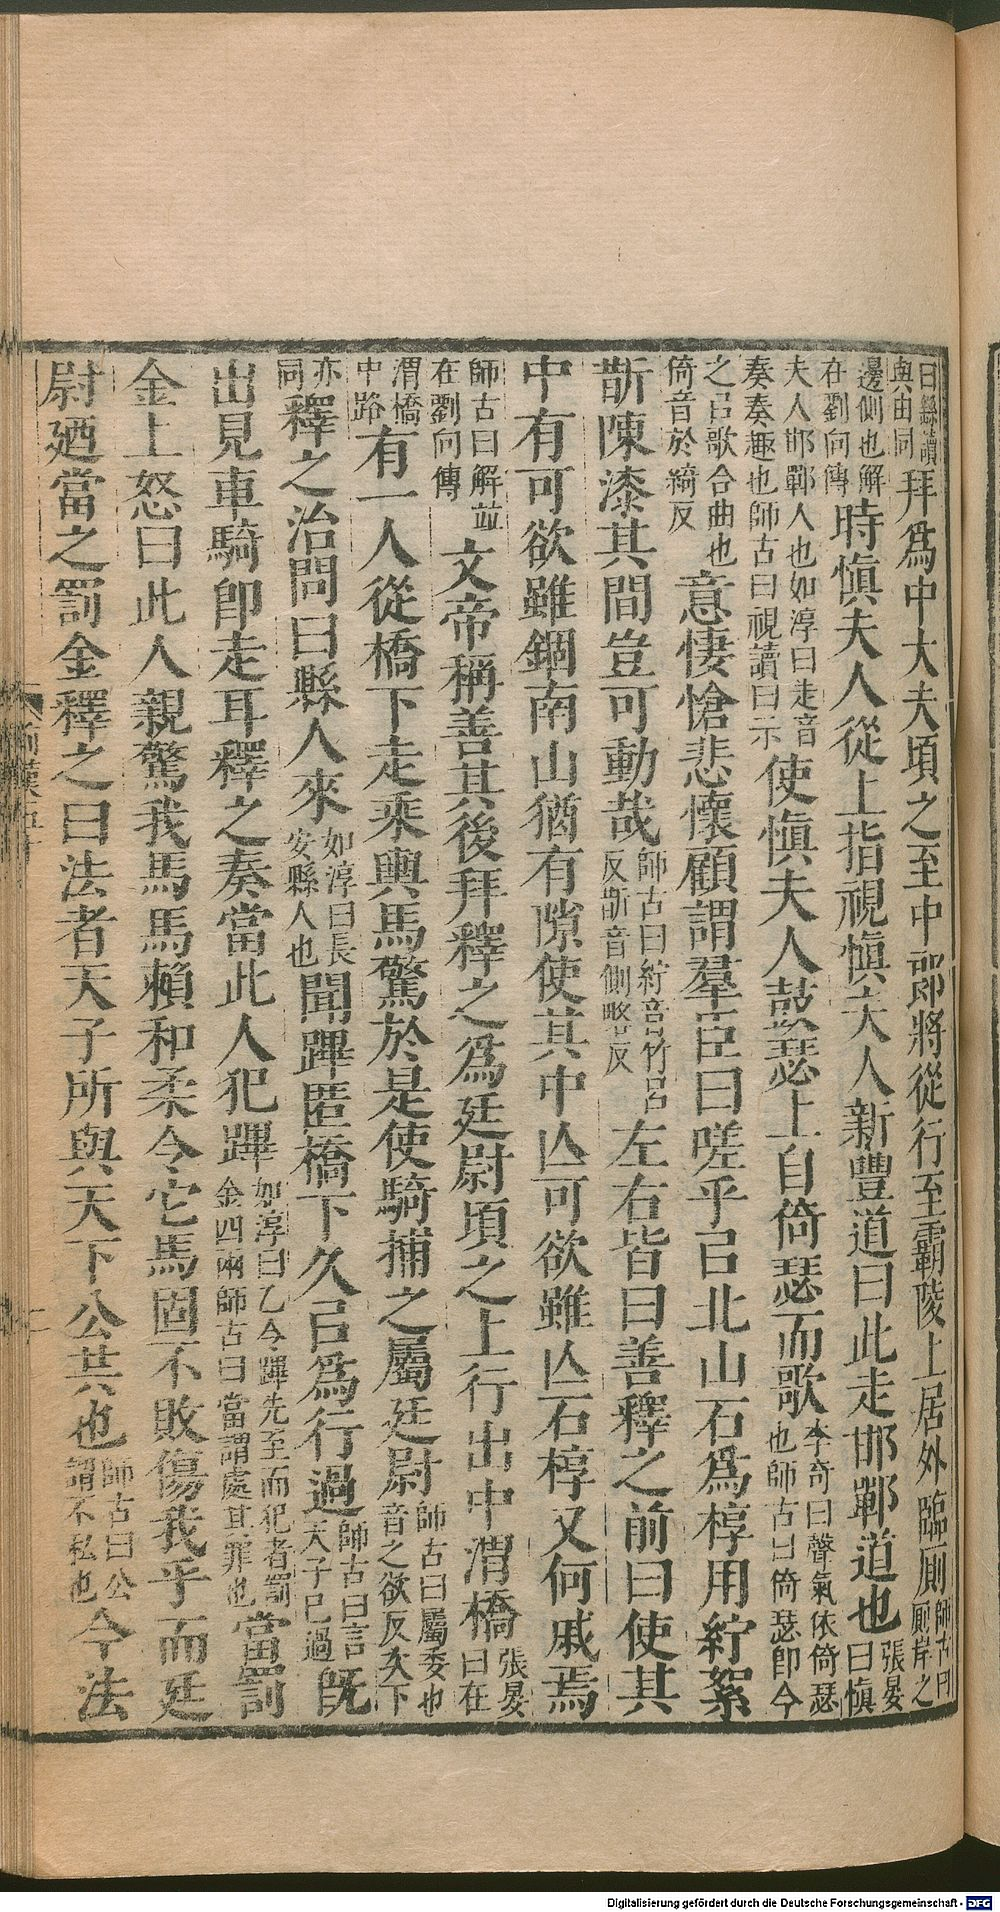 曰繇讀與由同拜爲中大夫頃之至中郎將從行至霸陵上居外臨厠師古曰厠岸之
邊側也解在劉向傳時愼夫人從上指視愼夫人新豐道曰此走邯鄲道也張晏曰愼
夫人邯鄲人也如淳曰走音奏奏趣也師古曰視讀曰示使愼夫人鼓瑟上自倚瑟而歌李奇曰聲氣依倚瑟也師古曰倚瑟即今
之㠯歌合曲也倚音於綺反意悽愴悲懷顧謂羣臣曰嗟乎㠯北山石爲椁用紵絮
斮陳漆其間豈可動哉師古曰紵音竹呂反斮音側略反左右皆曰善釋之前曰使其
中有可欲雖錮南山猶有隙使其中亾可欲雖亾石椁又何戚焉
師古曰解並在劉向傳文帝稱善其後拜釋之爲廷尉頃之上行出中渭橋張晏曰在
渭橋中路有一人從橋下走乘輿馬驚於是使騎捕之屬廷尉師古曰屬委也音之欲反次下
亦同釋之治問曰縣人來如淳曰長安縣人也聞蹕匿橋下久㠯爲行過師古曰言天子已過既
出見車騎即走耳釋之奏當此人犯蹕如淳曰乙令蹕先至而犯者罰金四兩師古曰當謂處其罪也當罰
金上怒曰此人親驚我馬馬賴和柔令它馬固不敗傷我乎而廷
尉廼當之罰金釋之曰法者天子所與天下公共也師古曰公謂不私也今法
Digitalisierung gefördert durch die Deutsche Forschungsgemeinschaft - DFG